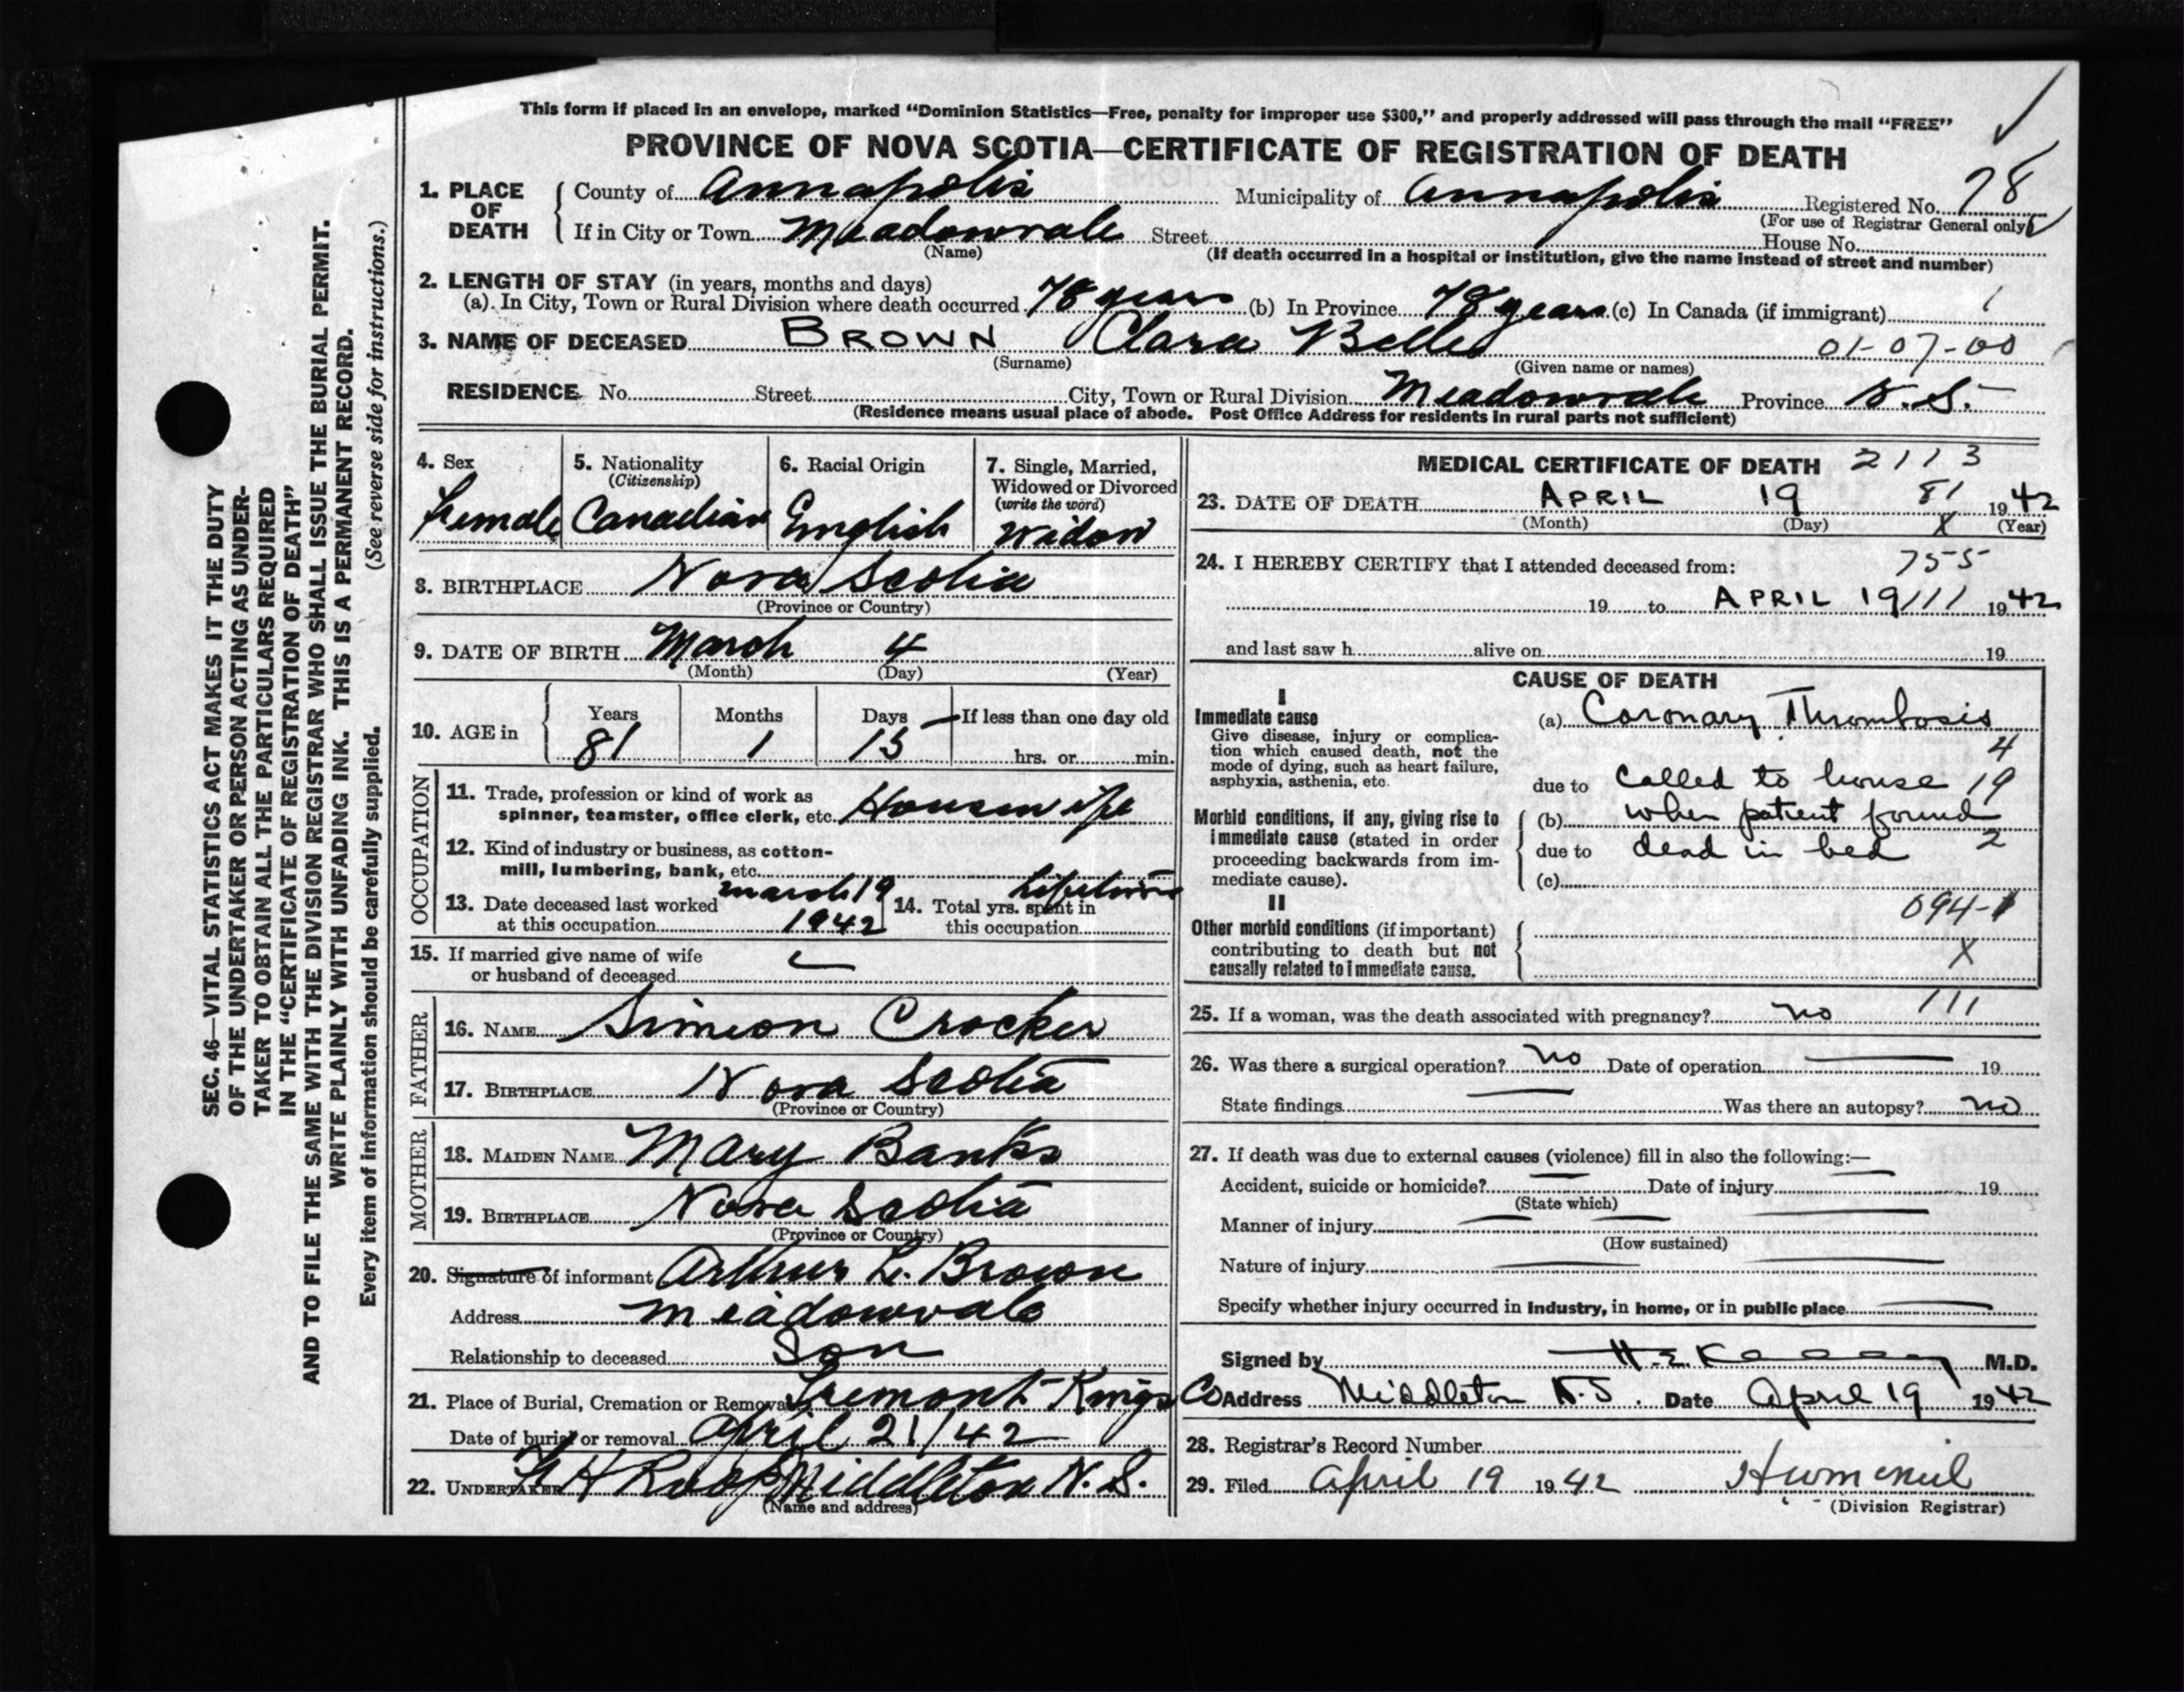 This form if placed in an envelope, marked “Dominion Statistics—Free, penalty for improper use $300,” and properly addressed will pass through the mail “FREE”
PROVINCE OF NOVA SCOTIA—CERTIFICATE OF REGISTRATION OF DEATH
1. PLACE OF DEATH
County of Annapolis Municipality of Annapolis Registered No. 78
(For use of Registrar General only)
If in City or Town Meadowvale Street House No.
(Name)
(If death occurred in a hospital or institution, give the name instead of street and number)
2. LENGTH OF STAY (in years, months and days)
(a). In City, Town or Rural Division where death occurred 78 years (b) In Province 78 years (c) In Canada (if immigrant)
3. NAME OF DECEASED BROWN Clara Belle 01-07-00
(Surname) (Given name or names)
RESIDENCE No. Street City, Town or Rural Division Meadowvale Province N.S.
(Residence means usual place of abode. Post Office Address for residents in rural parts not sufficient)
4. Sex
Female
5. Nationality
(Citizenship)
Canadian
6. Racial Origin
English
7. Single, Married,
Widowed or Divorced
(write the word)
Widow
8. BIRTHPLACE Nova Scotia
(Province or Country)
9. DATE OF BIRTH March 4
(Month) (Day) (Year)
10. AGE in
Years Months Days If less than one day old
81 1 15 hrs. or min.
OCCUPATION
11. Trade, profession or kind of work as
spinner, teamster, office clerk, etc. Housewife
12. Kind of industry or business, as cotton-
mill, lumbering, bank, etc.
13. Date deceased last worked
at this occupation march 19
1942
14. Total yrs. spent in
this occupation lifetime
15. If married give name of wife
or husband of deceased
FATHER
16. NAME Simeon Crocker
17. BIRTHPLACE Nova Scotia
(Province or Country)
MOTHER
18. MAIDEN NAME Mary Banks
19. BIRTHPLACE Nova Scotia
(Province or Country)
20. Signature of informant Arthur L. Brown
Address Meadowvale
Relationship to deceased Son
21. Place of Burial, Cremation or Removal Tremont Kings Co
Date of burial or removal April 21/42
22. UNDERTAKER H Roop Middleton N.S.
(Name and address)
MEDICAL CERTIFICATE OF DEATH 2113
23. DATE OF DEATH APRIL 19 81 1942
(Month) (Day) X (Year)
24. I HEREBY CERTIFY that I attended deceased from: 755
19 to APRIL 19 111 1942
and last saw h alive on 19
CAUSE OF DEATH
I
Immediate cause
Give disease, injury or complica-
tion which caused death, not the
mode of dying, such as heart failure,
asphyxia, asthenia, etc.
(a) Coronary Thrombosis
4
due to called to house 19
Morbid conditions, if any, giving rise to
immediate cause (stated in order
proceeding backwards from im-
mediate cause).
(b) when patient found
due to dead in bed 2
(c)
II
Other morbid conditions (if important)
contributing to death but not
causally related to immediate cause.
094-1
X
25. If a woman, was the death associated with pregnancy? no 111
26. Was there a surgical operation? no Date of operation 19
State findings Was there an autopsy? no
27. If death was due to external causes (violence) fill in also the following:—
Accident, suicide or homicide? Date of injury 19
(State which)
Manner of injury
(How sustained)
Nature of injury
Specify whether injury occurred in Industry, in home, or in public place
Signed by H.E. M.D.
Address Middleton N.S. Date April 19 1942
28. Registrar's Record Number
29. Filed April 19 1942
(Division Registrar)
SEC. 46—VITAL STATISTICS ACT MAKES IT THE DUTY
OF THE UNDERTAKER OR PERSON ACTING AS UNDER-
TAKER TO OBTAIN ALL THE PARTICULARS REQUIRED
IN THE “CERTIFICATE OF REGISTRATION OF DEATH”
AND TO FILE THE SAME WITH THE DIVISION REGISTRAR WHO SHALL ISSUE THE BURIAL PERMIT.
WRITE PLAINLY WITH UNFADING INK. THIS IS A PERMANENT RECORD.
Every item of information should be carefully supplied. (See reverse side for instructions.)